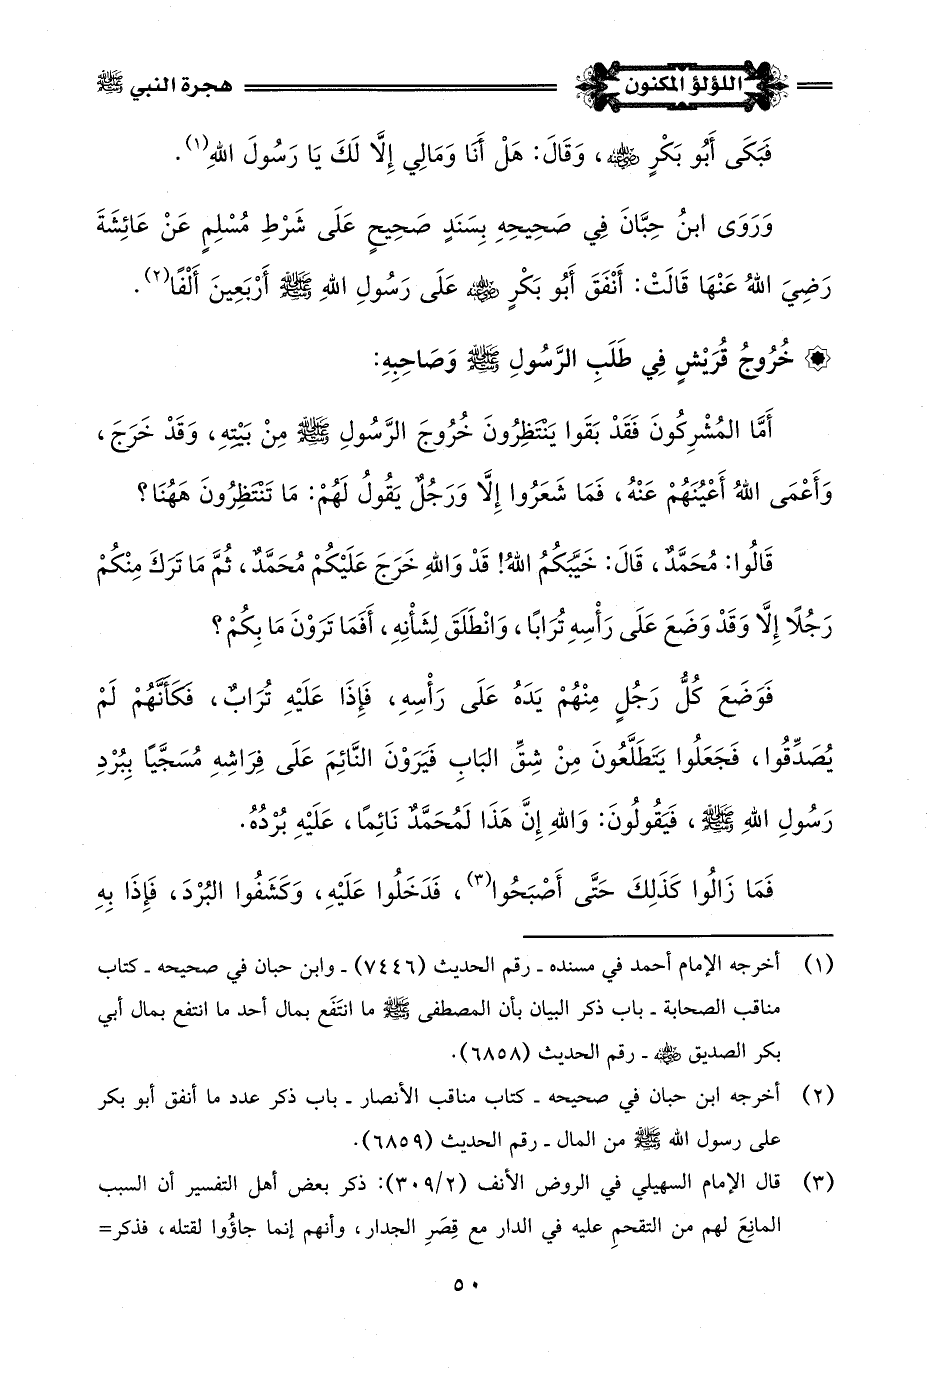 اللؤلؤ المكنون هجرة النبي ﷺ
فَبَكَى أَبُو بَكْرٍ رضي الله عنه، وَقَالَ: هَلْ أَنَا وَمَالِي إِلَّا لَكَ يَا رَسُولَ اللهِ(١).
وَرَوَى ابنُ حِبَّانَ فِي صَحِيحِهِ بِسَنَدٍ صَحِيحٍ عَلَى شَرْطِ مُسْلِمٍ عَنْ عَائِشَةَ
رَضِيَ اللهُ عَنْهَا قَالَتْ: أَنْفَقَ أَبُو بَكْرٍ رضي الله عنه عَلَى رَسُولِ اللهِ ﷺ أَرْبَعِينَ أَلْفًا(٢).
۞ خُرُوجُ قُرَيْشٍ فِي طَلَبِ الرَّسُولِ ﷺ وَصَاحِبِهِ:
أَمَّا المُشْرِكُونَ فَقَدْ بَقَوا يَنْتَظِرُونَ خُرُوجَ الرَّسُولِ ﷺ مِنْ بَيْتِهِ، وَقَدْ خَرَجَ،
وَأَعْمَى اللهُ أَعْيُنَهُمْ عَنْهُ، فَمَا شَعَرُوا إِلَّا وَرَجُلٌ يَقُولُ لَهُمْ: مَا تَنْتَظِرُونَ هَهُنَا؟
قَالُوا: مُحَمَّدٌ، قَالَ: خَيَّبَكُمُ اللهُ! قَدْ وَاللهِ خَرَجَ عَلَيْكُمْ مُحَمَّدٌ، ثُمَّ مَا تَرَكَ مِنْكُمْ
رَجُلًا إِلَّا وَقَدْ وَضَعَ عَلَى رَأْسِهِ تُرَابًا، وَانْطَلَقَ لِشَأْنِهِ، أَفَمَا تَرَوْنَ مَا بِكُمْ؟
فَوَضَعَ كُلُّ رَجُلٍ مِنْهُمْ يَدَهُ عَلَى رَأْسِهِ، فَإِذَا عَلَيْهِ تُرَابٌ، فَكَأَنَّهُمْ لَمْ
يُصَدِّقُوا، فَجَعَلُوا يَتَطَلَّعُونَ مِنْ شِقِّ البَابِ فَيَرَوْنَ النَّائِمَ عَلَى فِرَاشِهِ مُسَجَّيًا بِبُرْدِ
رَسُولِ اللهِ ﷺ، فَيَقُولُونَ: وَاللهِ إِنَّ هَذَا لَمُحَمَّدٌ نَائِمًا، عَلَيْهِ بُرْدُهُ.
فَمَا زَالُوا كَذَلِكَ حَتَّى أَصْبَحُوا(٣)، فَدَخَلُوا عَلَيْهِ، وَكَشَفُوا البُرْدَ، فَإِذَا بِهِ
(١) أخرجه الإمام أحمد في مسنده ـ رقم الحديث (٧٤٤٦) ـ وابن حبان في صحيحه ـ كتاب
مناقب الصحابة ـ باب ذكر البيان بأن المصطفى ﷺ ما انتَفَع بمال أحد ما انتفع بمال أبي
بكر الصديق رضي الله عنه ـ رقم الحديث (٦٨٥٨).
(٢) أخرجه ابن حبان في صحيحه ـ كتاب مناقب الأنصار ـ باب ذكر عدد ما أنفق أبو بكر
على رسول الله ﷺ من المال ـ رقم الحديث (٦٨٥٩).
(٣) قال الإمام السهيلي في الروض الأنف (٣٠٩/٢): ذكر بعض أهل التفسير أن السبب
المانِعَ لهم من التقحمِ عليه في الدار مع قِصَرِ الجدار، وأنهم إنما جاؤُوا لقتله، فذكر=
٥٠